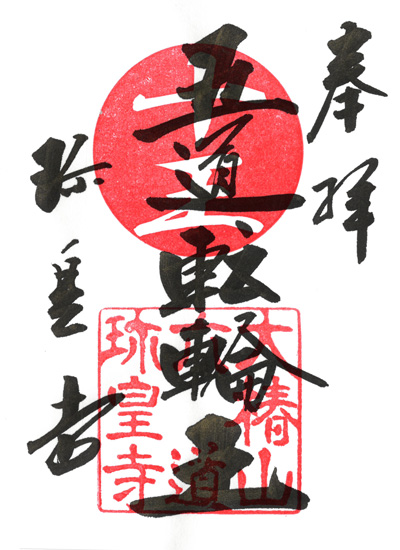 奉拝
五道転輪王
珍皇寺
大椿山
六道
珍皇寺